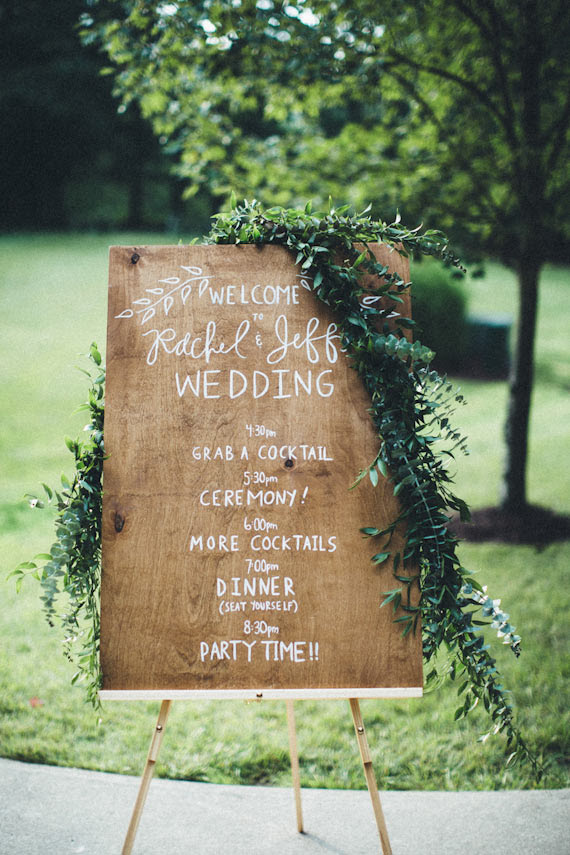 WELCOME
TO
Rachel & Jeff
WEDDING
4:30pm
GRAB A COCKTAIL
5:30pm
CEREMONY!
6:00pm
MORE COCKTAILS
7:00pm
DINNER
(SEAT YOURSELF)
8:30pm
PARTY TIME!!